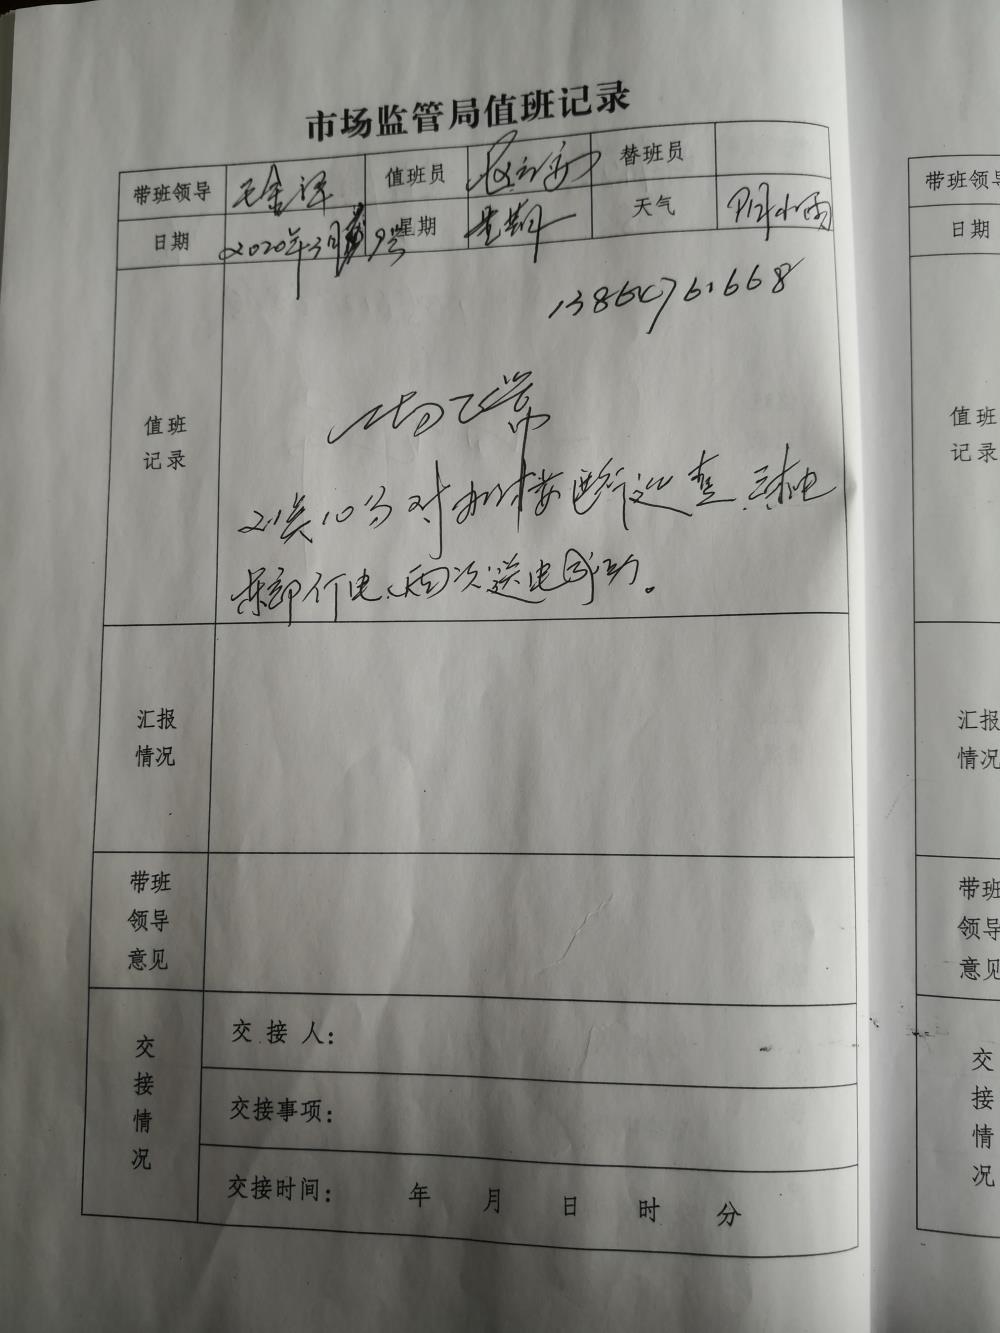 市场监管局值班记录
带班领导 毛金泽 值班员 替班员
日期 2020年3月9号 星期 星期一 天气 阴小雨
13864761668
值班
记录
一切正常
21点10分对办公楼进行巡查
两次送电成功。
汇报
情况
带班
领导
意见
交接情况
交接人：
交接事项：
交接时间： 年 月 日 时 分
带班领导
日期
值班
记录
汇报
情况
带班
领导
意见
交接情况